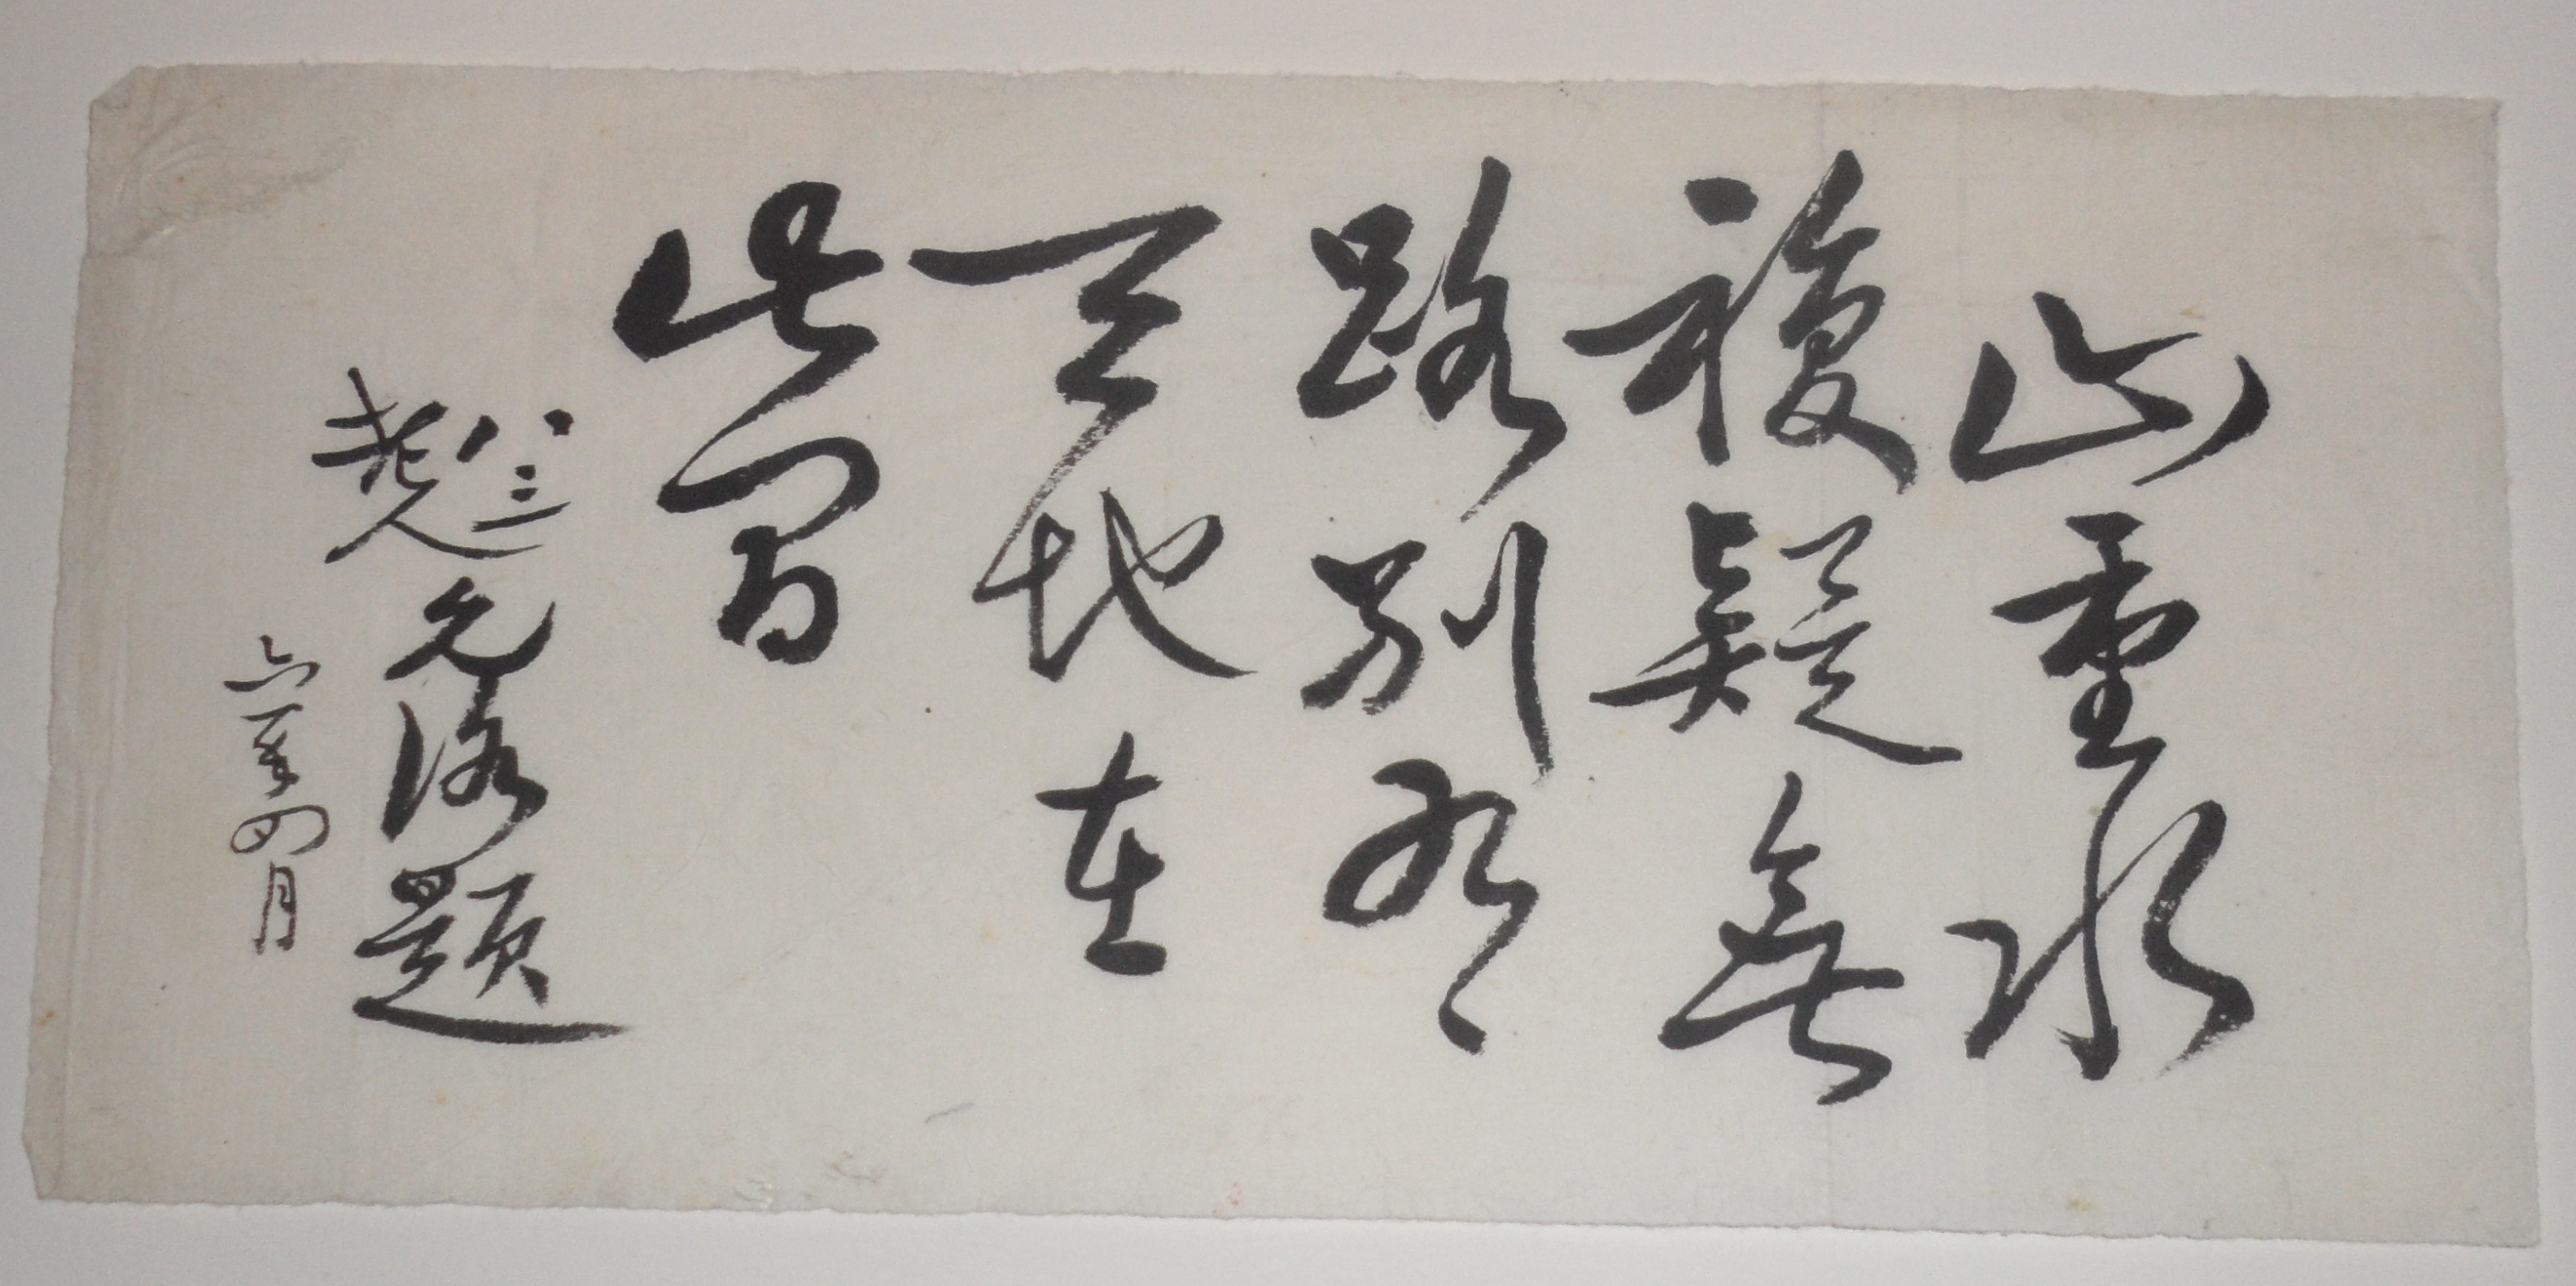 山重水
複疑無
路別有
天地在
此間
八三
老人
允洛題
六一年四月